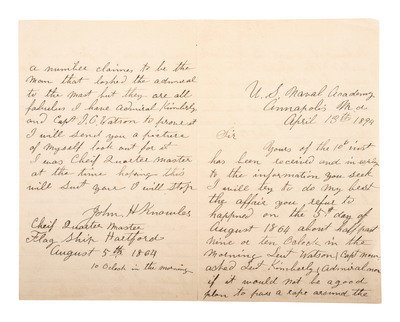 U. S. Naval Academy
Annapolis Md.
April 13th 1894
Sir
Yours of the 10th inst
has been received and in reply
to the information you seek
I will try to do my best
the affair you refure to
happened on the 5th day of
August 1864 about half past
nine or ten Oclock in the
Morning Leut Watson (Capt now
asked Leut Kimberly (Admiral now
if it would not be a good
plan to pass a rope around the
a number claimes to be the
man that lashed the admiral
to the mast but they are all
fabulus I have Admiral Kimberly
and Capt J. C. Watson to prove it
I will send you a picture
of myself look out for it
I was Cheif Quarter master
at the time hoping this
will suit you I will stop
John H Knowles
Cheif Quarter Master
Flag Ship Hartford
August 5th 1864
10 Oclock in the morning